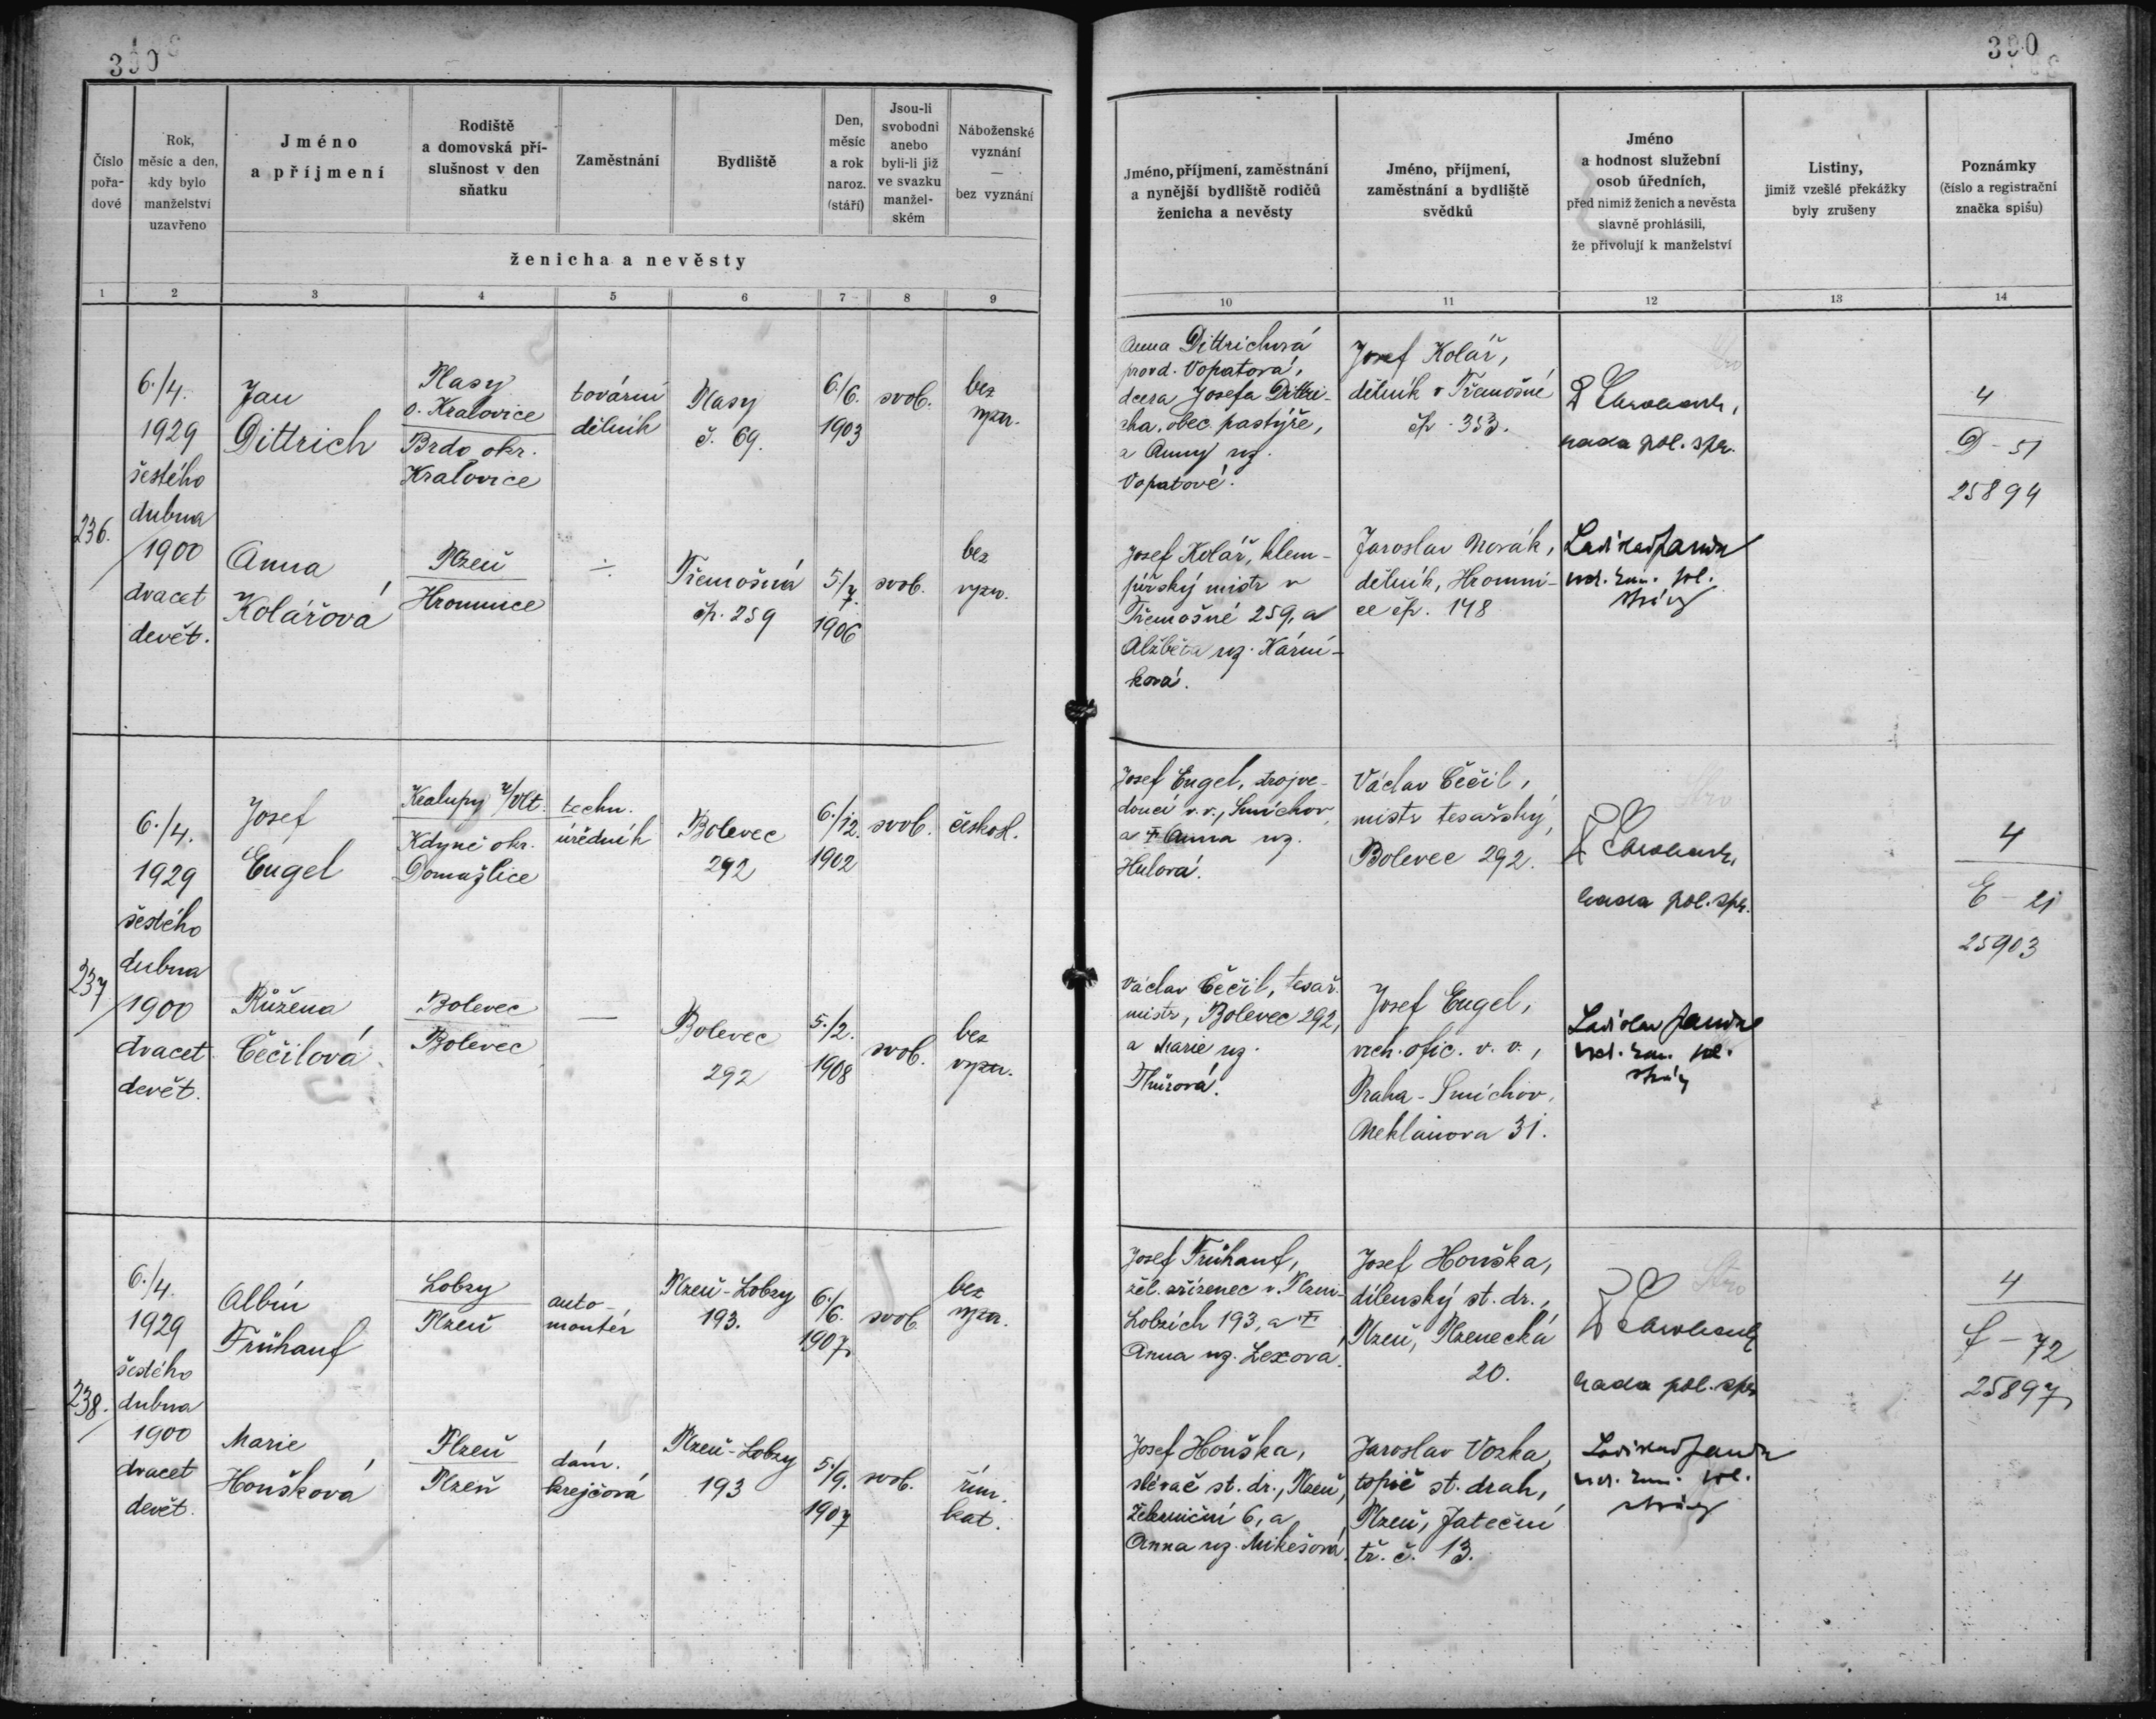 390
390
Číslo pořa-dové
Rok, měsíc a den, kdy bylo manželství uzavřeno
Jméno a příjmení
Rodiště a domovská pří-slušnost v den sňatku
Zaměstnání
Bydliště
Den, měsíc a rok naroz. (stáří)
Jsou-li svobodni anebo byli-li již ve svazku manžel-ském
Náboženské vyznání — bez vyznání
ženicha a nevěsty
Jméno, příjmení, zaměstnání a nynější bydliště rodičů ženicha a nevěsty
Jméno, příjmení, zaměstnání a bydliště svědků
Jméno a hodnost služební osob úředních, před nimiž ženich a nevěsta slavně prohlásili, že přivolují k manželství
Listiny, jimiž vzešlé překážky byly zrušeny
Poznámky (číslo a registrační značka spisu)
1 2 3 4 5 6 7 8 9 10 11 12 13 14
236.
6./4.
1929
šestého
dubna
1900
dvacet
devět.
Jan
Dittrich
Plasy
o. Kralovice
Brdo okr.
Kralovice
tovární
dělník
Plasy
č. 69.
6./6.
1903
svob.
bez
vyzn.
Anna Dittrichová
provd. Vopatová,
dcera Josefa Dittri-
cha, obec. pastýře,
a Anny roz.
Vopatové.
Josef Kolář,
dělník v Třemošné
čp. 353.
rada pol. spr.
4
D - 51
25894
Anna
Kolářová
Plzeň
Hromnice
÷
Třemošná
čp. 259
5./7.
1906
svob.
bez
vyzn.
Josef Kolář, klem-
pířský mistr v
Třemošné 259, a
Alžběta roz. Kární-
ková.
Jaroslav Novák,
dělník, Hromni-
ce čp. 148
Ladislav Janda
237
6./4.
1929
šestého
dubna
1900
dvacet
devět.
Josef
Engel
Kralupy n/Vlt.
Kdyně okr.
Domažlice
techn.
úředník
Bolevec
292
6./12.
1902
svob.
českosl.
Josef Engel, strojve-
doucí v. v., Smíchov,
a † Anna roz.
Hulová.
Václav Čečil,
mistr tesařský,
Bolevec 292.
rada pol. spr.
4
E - 21
25903
Růžena
Čečilová
Bolevec
Bolevec
—
Bolevec
292
5./2.
1908
svob.
bez
vyzn.
Václav Čečil, tesař.
mistr, Bolevec 292,
a Marie roz.
Thůrová.
Josef Engel,
vrch. ofic. v. v.,
Praha - Smíchov,
Neklanova 31.
Ladislav Janda
238.
6./4.
1929
šestého
dubna
1900
dvacet
devět.
Albín
Frühauf
Lobzy
Plzeň
auto-
montér
Plzeň - Lobzy
193.
6./6.
1907
svob.
bez
vyzn.
Josef Frühauf,
žel. zřízenec v Plzni-
Lobzích 193, a †
Anna roz. Lexová.
Josef Houška,
dílenský st. dr.,
Plzeň, Plzenecká
20.
rada pol. spr.
4
f - 72
25897
Marie
Houšková
Plzeň
Plzeň
dám.
krejčová
Plzeň - Lobzy
193
5./9.
1907
svob.
řím.
kat.
Josef Houška,
slévač st. dr., Plzeň,
Železniční 6, a
Anna roz. Mikešová.
Jaroslav Vozka,
topič st. drah,
Plzeň, Jateční
tř. č. 13.
Ladislav Janda